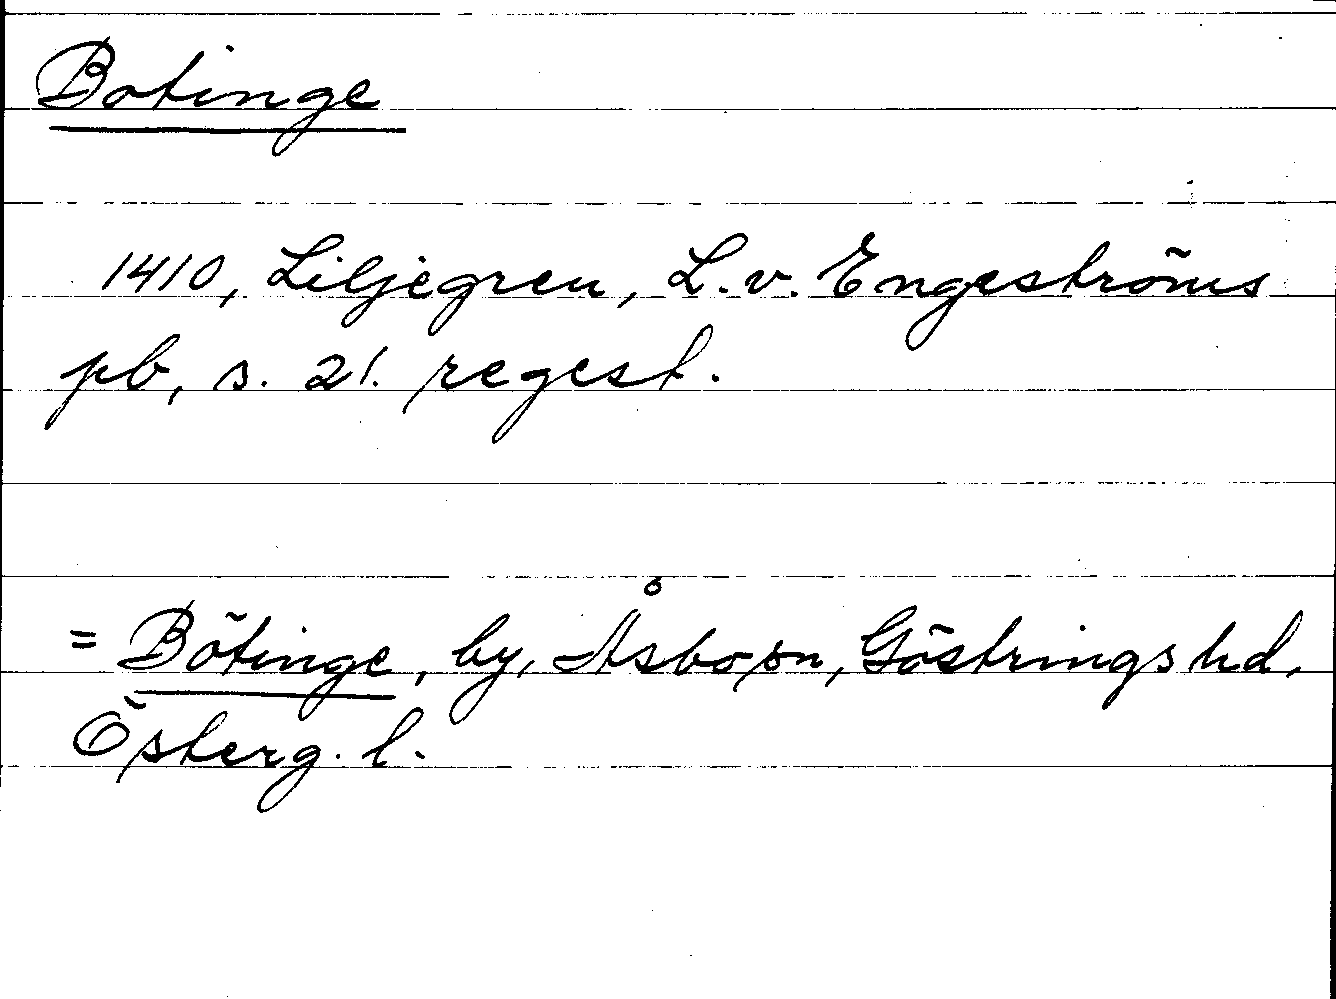 Botinge
1410, Liljegren, L. v. Engeströms
pb, s. 21. regest.
= Bötinge, by, Åsbo sn, Göstrings hd,
Österg. l.